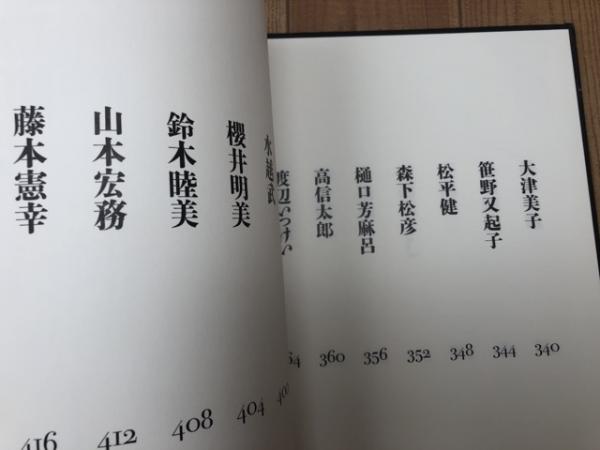 大津美子
340
笹野又起子
344
松平健
348
森下松彦
352
樋口芳麻呂
356
高信太郎
360
渡辺いっけい
64
水越武
400
櫻井明美
404
鈴木睦美
408
山本宏務
412
藤本憲幸
416